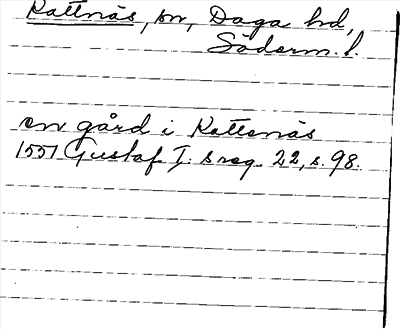 Kattnäs, sn, Daga hd,
Söderm. l.
en gård i Kattenäs
1551 Gustaf I:s reg. 22, s. 98.